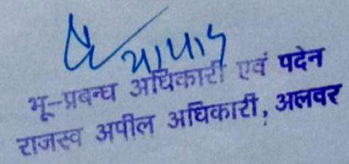 भू–प्रबन्ध अधिकारी एवं पदेन
राजस्व अपील अधिकारी, अलवर